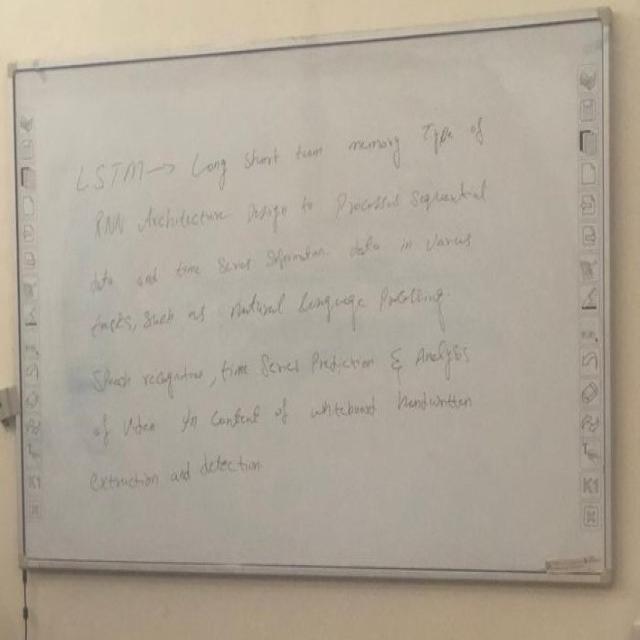 LSTM → Long short team memory Type of
RNN Architecture Design to Processes Sequential
data and time Series data in varius
tasks, such as Natural Language Processing.
recognition, time Series Prediction & Analysis
of Video in Content of whiteboard handwritten
extraction and detection